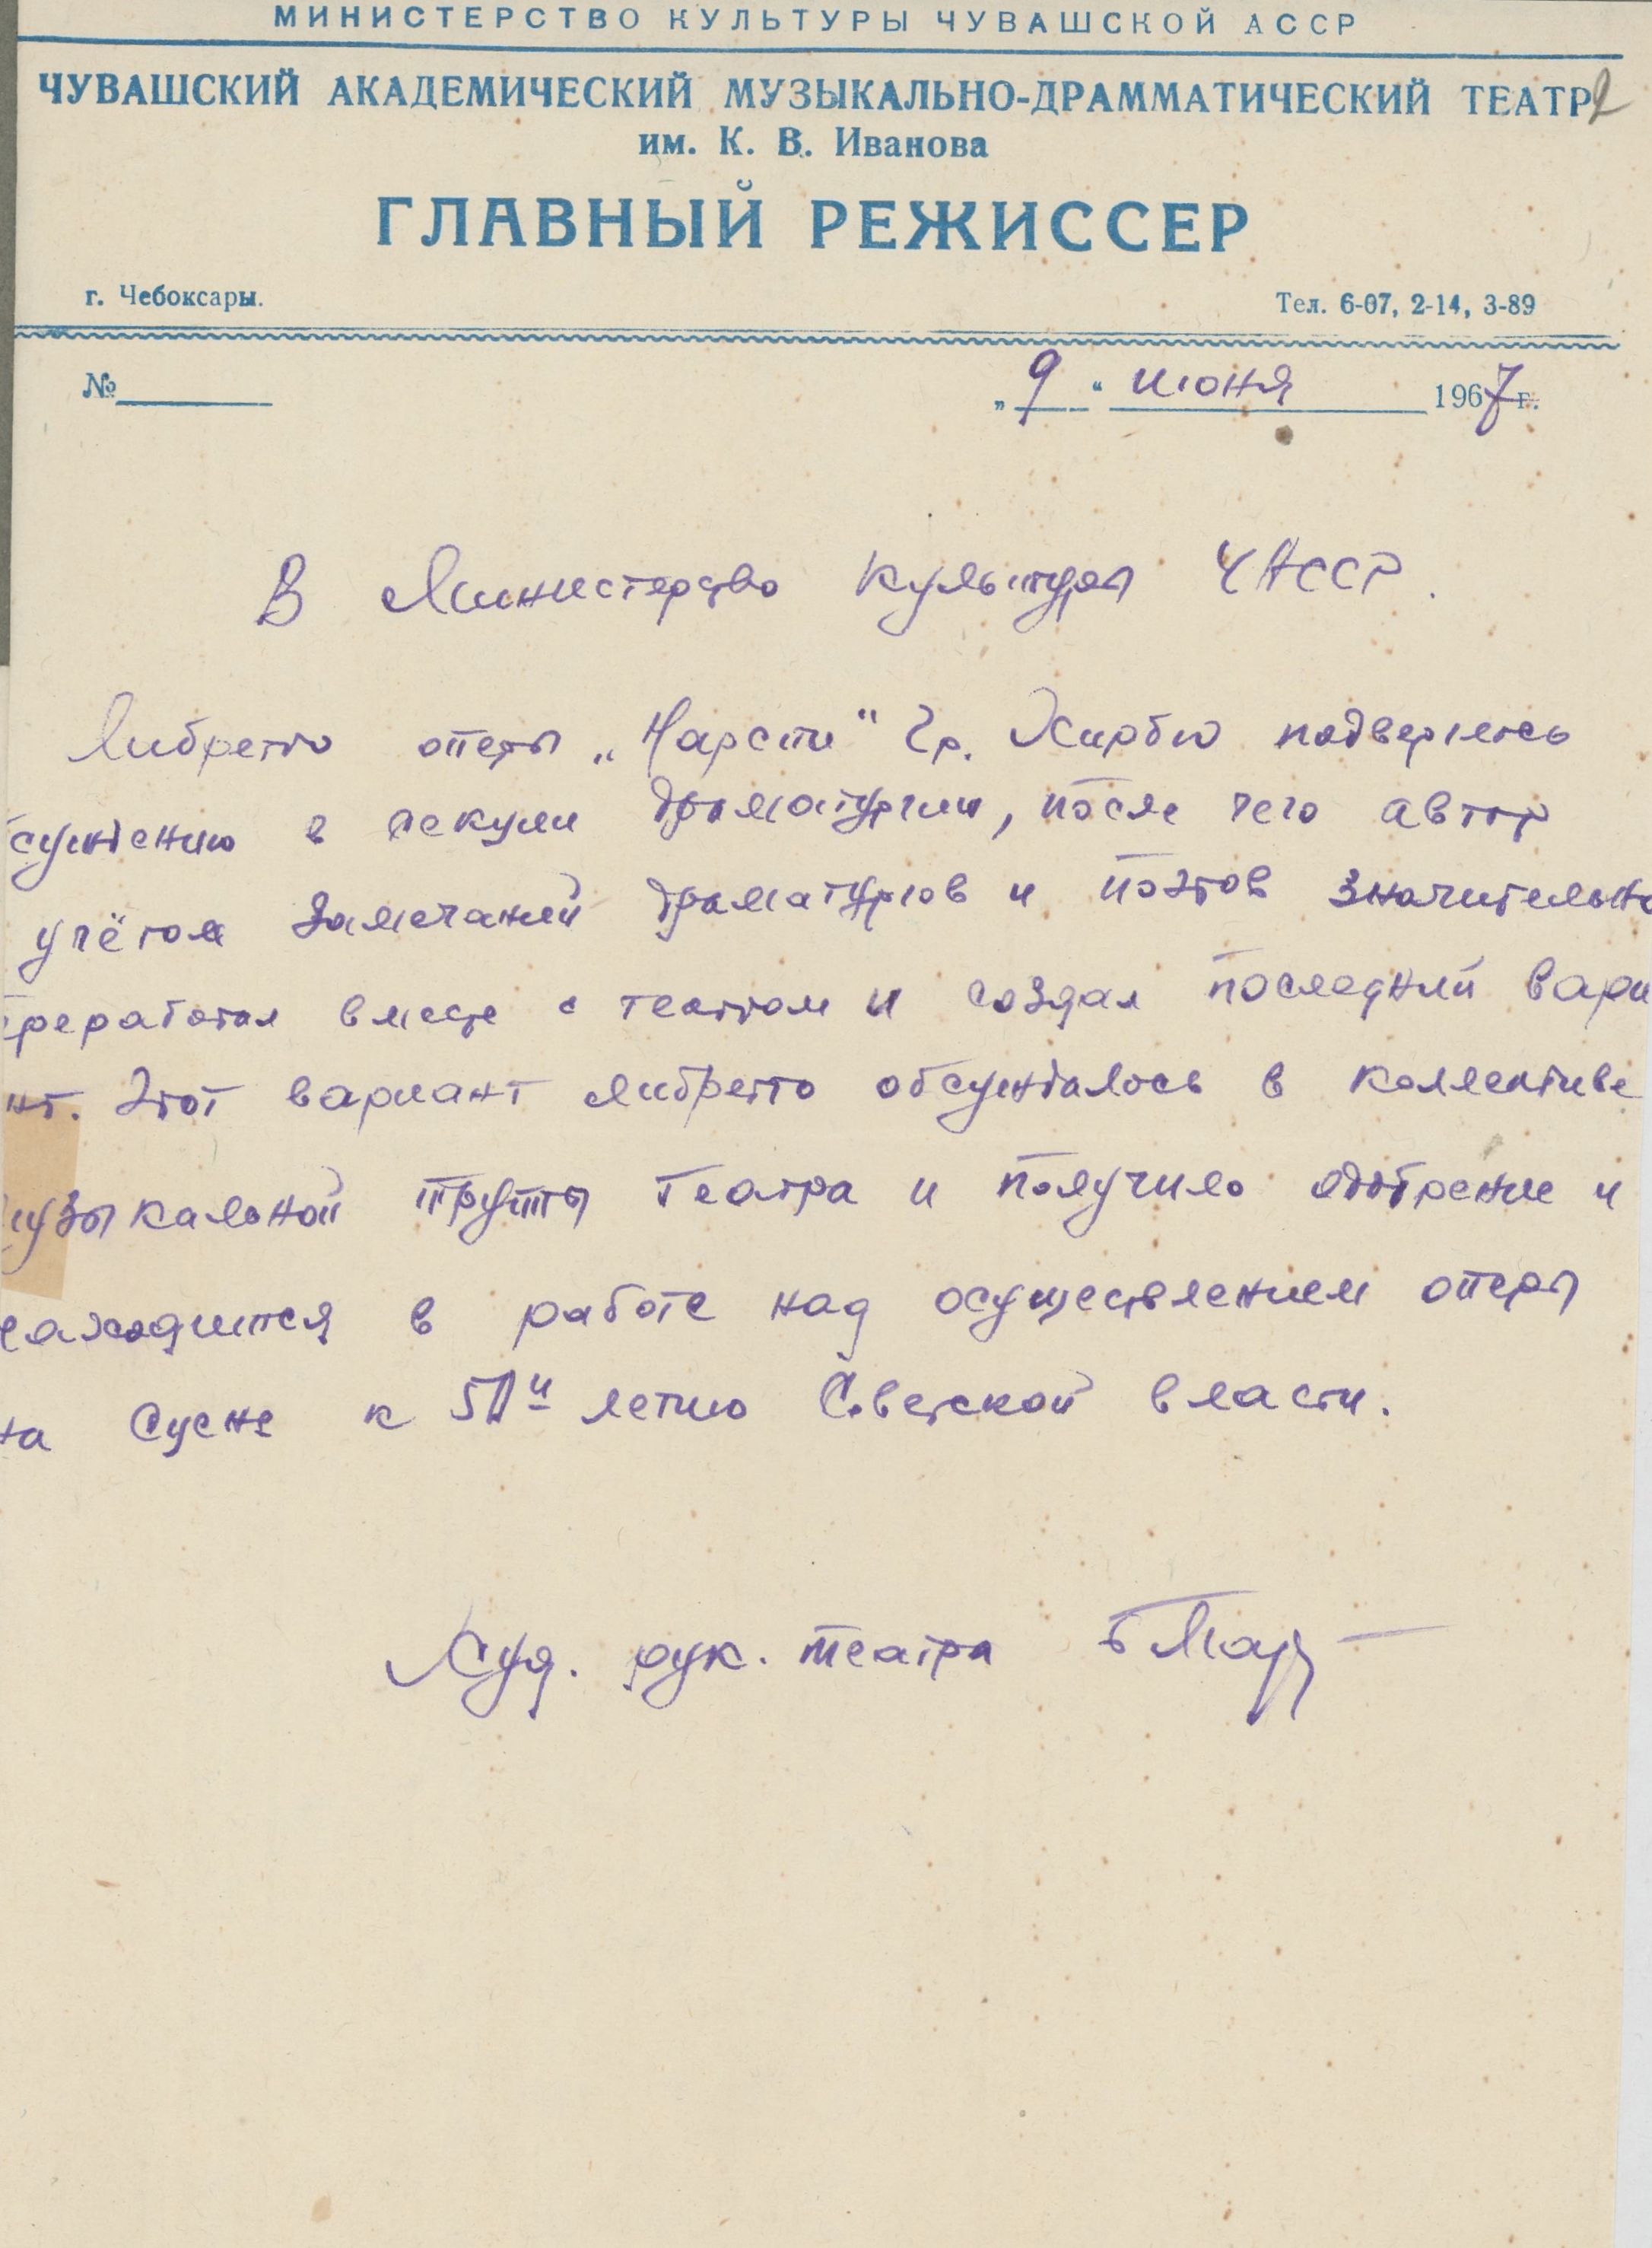 МИНИСТЕРСТВО КУЛЬТУРЫ ЧУВАШСКОЙ АССР
ЧУВАШСКИЙ АКАДЕМИЧЕСКИЙ МУЗЫКАЛЬНО-ДРАММАТИЧЕСКИЙ ТЕАТР 2
им. К. В. Иванова
ГЛАВНЫЙ РЕЖИССЕР
г. Чебоксары. Тел. 6-07, 2-14, 3-89
№ „9“ июня 1967 г.
В Министерство культуры ЧАССР.
Либретто оперы „Нарспи“ Гр. Хирбю подверглось
суждению в секции драматургии, после чего автор
учётом замечаний драматургов и поэтов значительно
переработал вместе с театром и создал последний вари
нт. Этот вариант либретто обсуждалось в коллективе
музыкальной труппы театра и получило одобрение и
находится в работе над осуществлением оперы
на сцене к 50и летию Советской власти.
Худ. рук. театра